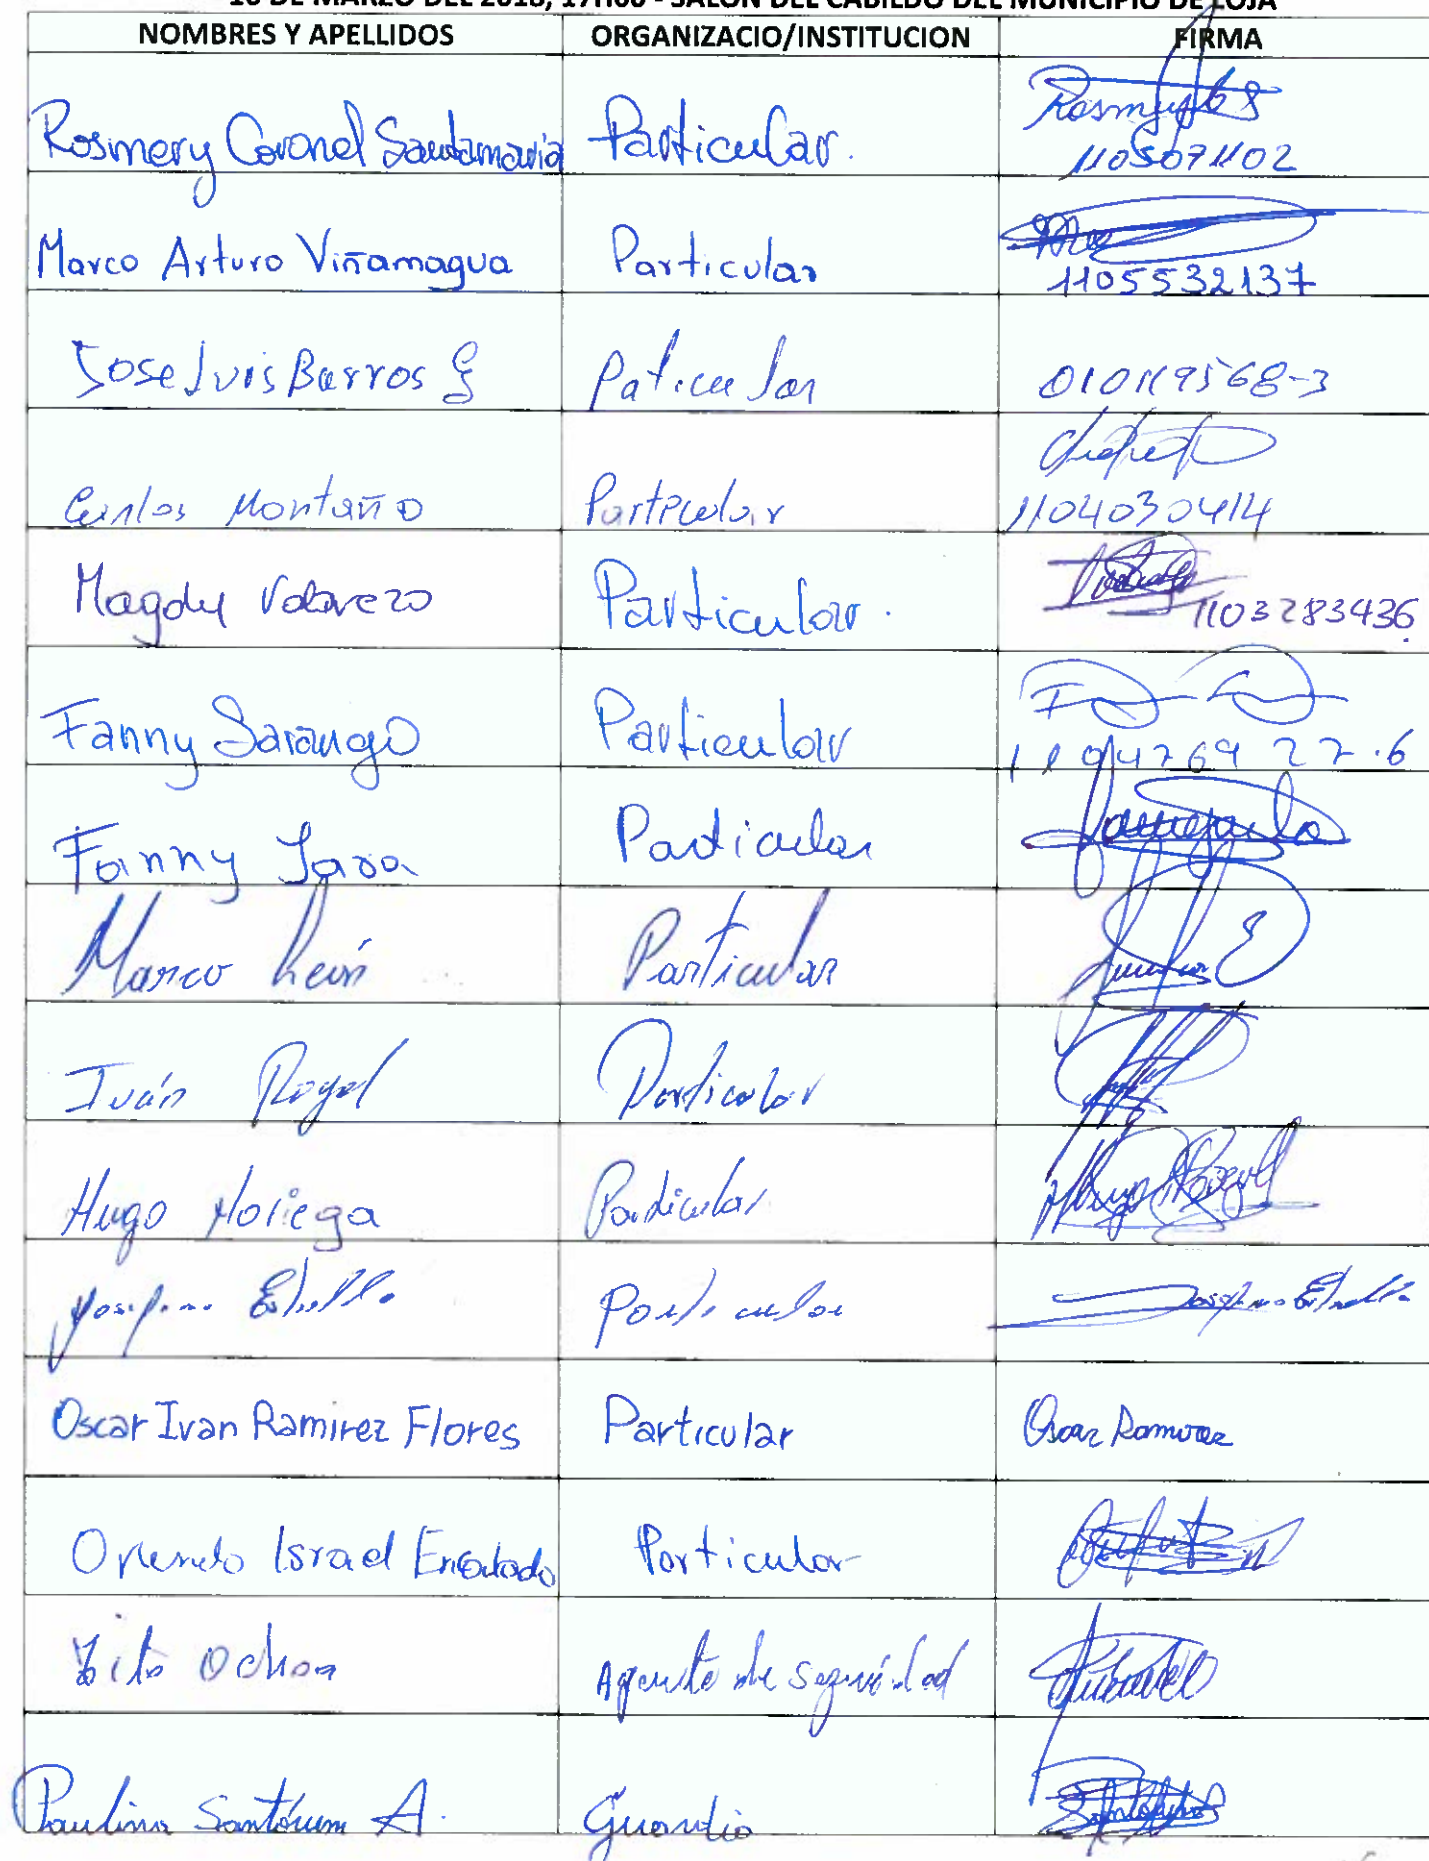 DE MARZO DEL 2018, 17H00 - SALON DEL CABILDO DEL MUNICIPIO DE LOJA
NOMBRES Y APELLIDOS ORGANIZACIO/INSTITUCION FIRMA
Rosmery Coronel Santamaria Particular.
1105071102
Marco Arturo Viñamagua Particular
1105532137
Jose Luis Barros G Paticular 010119568-3
Carlos Montaño Particular
1104030414
Magdy Valarezo Particular.
1103283436
Fanny Sarango Particular
110476922-6
Fanny Jara Particular
Marco León Particular
Iván Rogel Particular
Hugo Noriega Particular
Josefina Estrella Particular Josefina Estrella
Oscar Ivan Ramirez Flores Particular Oscar Ramirez
Orlando Israel Encalada Particular
Tito Ochoa Agente de seguridad
Paulina Santórum A. Guardia